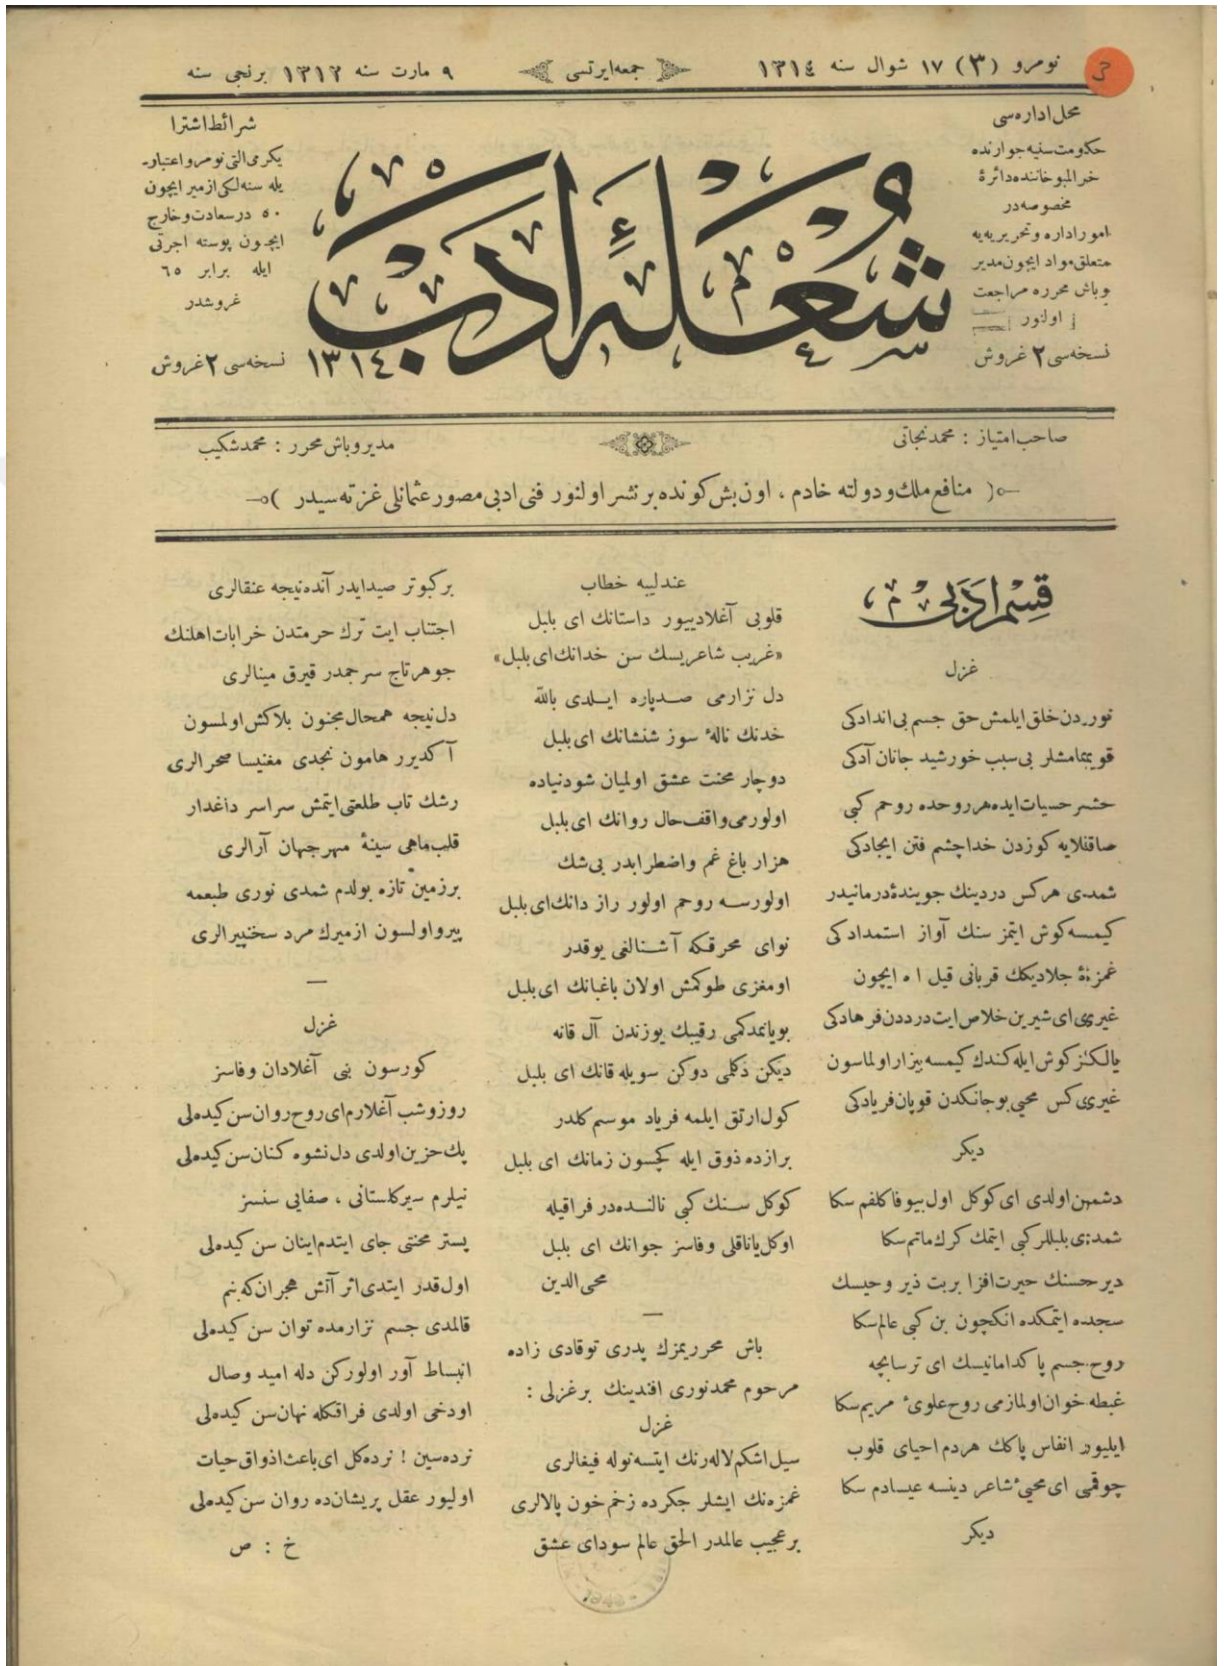 نومرو (٣) ١٧ شوال سنه ١٣١٤
جمعه‌ایرتسی
٩ مارت سنه ١٣١٢ برنجی سنه
محل اداره‌سی
حکومت سنیه جوارنده
خرالمبو خاننده دائرهٔ
مخصوصه‌در
امور اداره و تحریریه‌یه
متعلق مواد ایچون مدیر
وباش محرره مراجعت
اولنور
نسخه‌سی ٢ غروش
شعلهٔ ادب
١٣١٤
شرائط اشترا
یکرمی‌التی نومرو اعتبار-
یله سنه‌لکی ازمیر ایچون
٥٠ درسعادت و خارج
ایچون پوسته اجرتی
ایله برابر ٦٥
غروشدر
نسخه‌سی ٢ غروش
صاحب امتیاز : محمد نجاتی
مدیر و باش محرر : محمد شکیب
( منافع ملك و دولته خادم ، اون بش کونده بر نشر اولنور فنی ادبی مصور عثمانلی غزته‌سیدر )
قسم ادبی
غزل
نوردن خلق ایلمش حق جسم بی اندادکی
قویمامشلر بی سبب خورشید جانان آدکی
حشر حسیات ایده‌هر روحده روحم کبی
صاقنلایه کوزدن خدا چشم فتن ایجادکی
شمدی هرکس دردینك جویندهٔ درمانیدر
کیمسه کوش ایتمز سنك آواز استمدادکی
غمزهٔ جلادیکك قربانی قیل ا ه ایچون
غیری ای شیرین خلاص ایت درددن فرهادکی
یالکز کوش ایله کندك کیمسه بیزار اولماسون
غیری کس محیی بو جانکدن قوپان فریادکی
دیکر
دشمن اولدی ای کوکل اول بیوفا کلفم سکا
شمدی بلبللر کبی ایتمك کرك ماتم سکا
دیر حسنك حیرت افزا بربت ذیر وحیسك
سجده ایتمکده انکچون بن کبی عالم سکا
روح جسم پاکدامانیسك ای ترسا بچه
غبطه خوان اولمازمی روح علوئ مریم سکا
ایلیور انفاس پاکك هردم احیای قلوب
چوقمی ای محیئ شاعر دینسه عیسادم سکا
دیکر
عندلیبه خطاب
قلوبی آغلادییور داستانك ای بلبل
«غریب شاعریسك سن خدانك ای بلبل»
دل نزارمی صدپاره ایلدی بالله
خدنك نالهٔ سوز شنشانك ای بلبل
دوچار محنت عشق اولمیان شو دنیاده
اولورمی واقف حال روانك ای بلبل
هزار باغ غم واضطرابدر بی شك
اولورسه روحم اولور راز دانك ای بلبل
نوای محرقکه آشنالغی یوقدر
اومغزی طوکمش اولان باغبانك ای بلبل
بویانمدکمی رقیبك یوزندن آل قانه
دیکن دکلمی دوکن سویله قانك ای بلبل
کول ارتق ایلمه فریاد موسم کلدر
برازده ذوق ایله کچسون زمانك ای بلبل
کوکل سنك کبی نالنده‌در فراقیله
اوکل یاناقلی وفاسز جوانك ای بلبل
محی الدین
باش محرریمزك پدری توقادی زاده
مرحوم محمد نوری افندینك بر غزلی :
غزل
سیل اشکم لاله‌رنك ایتسه نوله فیغالری
غمزه‌نك ایشلر جکرده زخم خون پالالری
بر عجیب عالمدر الحق عالم سودای عشق
بر کبوتر صید ایدر آنده نیجه عنقالری
اجتناب ایت ترك حرمتدن خرابات اهلنك
جوهر تاج سر جمدر قیرق مینالری
دل نیجه همحال مجنون بلاکش اولمسون
آکدیرر هامون نجدی مغنیسا صحرالری
رشك تاب طلعتی ایتمش سراسر داغدار
قلب ماهی سینهٔ مهر جهان آرالری
بر زمین تازه بولدم شمدی نوری طبعمه
پیرو اولسون ازمیرك مرد سخنپیرالری
غزل
کورسون بنی آغلادان وفاسز
روز وشب آغلارم ای روح روان سن کیده‌لی
پك حزین اولدی دل نشوه کنان سن کیده‌لی
نیلرم سیرکلستانی ، صفایی سنسز
بستر محنتی جای ایتدم اینان سن کیده‌لی
اول قدر ایتدی اثر آتش هجران که بنم
قالمدی جسم نزارمده توان سن کیده‌لی
انبساط آور اولورکن دله امید وصال
اودخی اولدی فراقکله نهان سن کیده‌لی
نرده‌سین ! نرده کل ای باعث اذواق حیات
اولیور عقل پریشان‌ده روان سن کیده‌لی
خ : ص